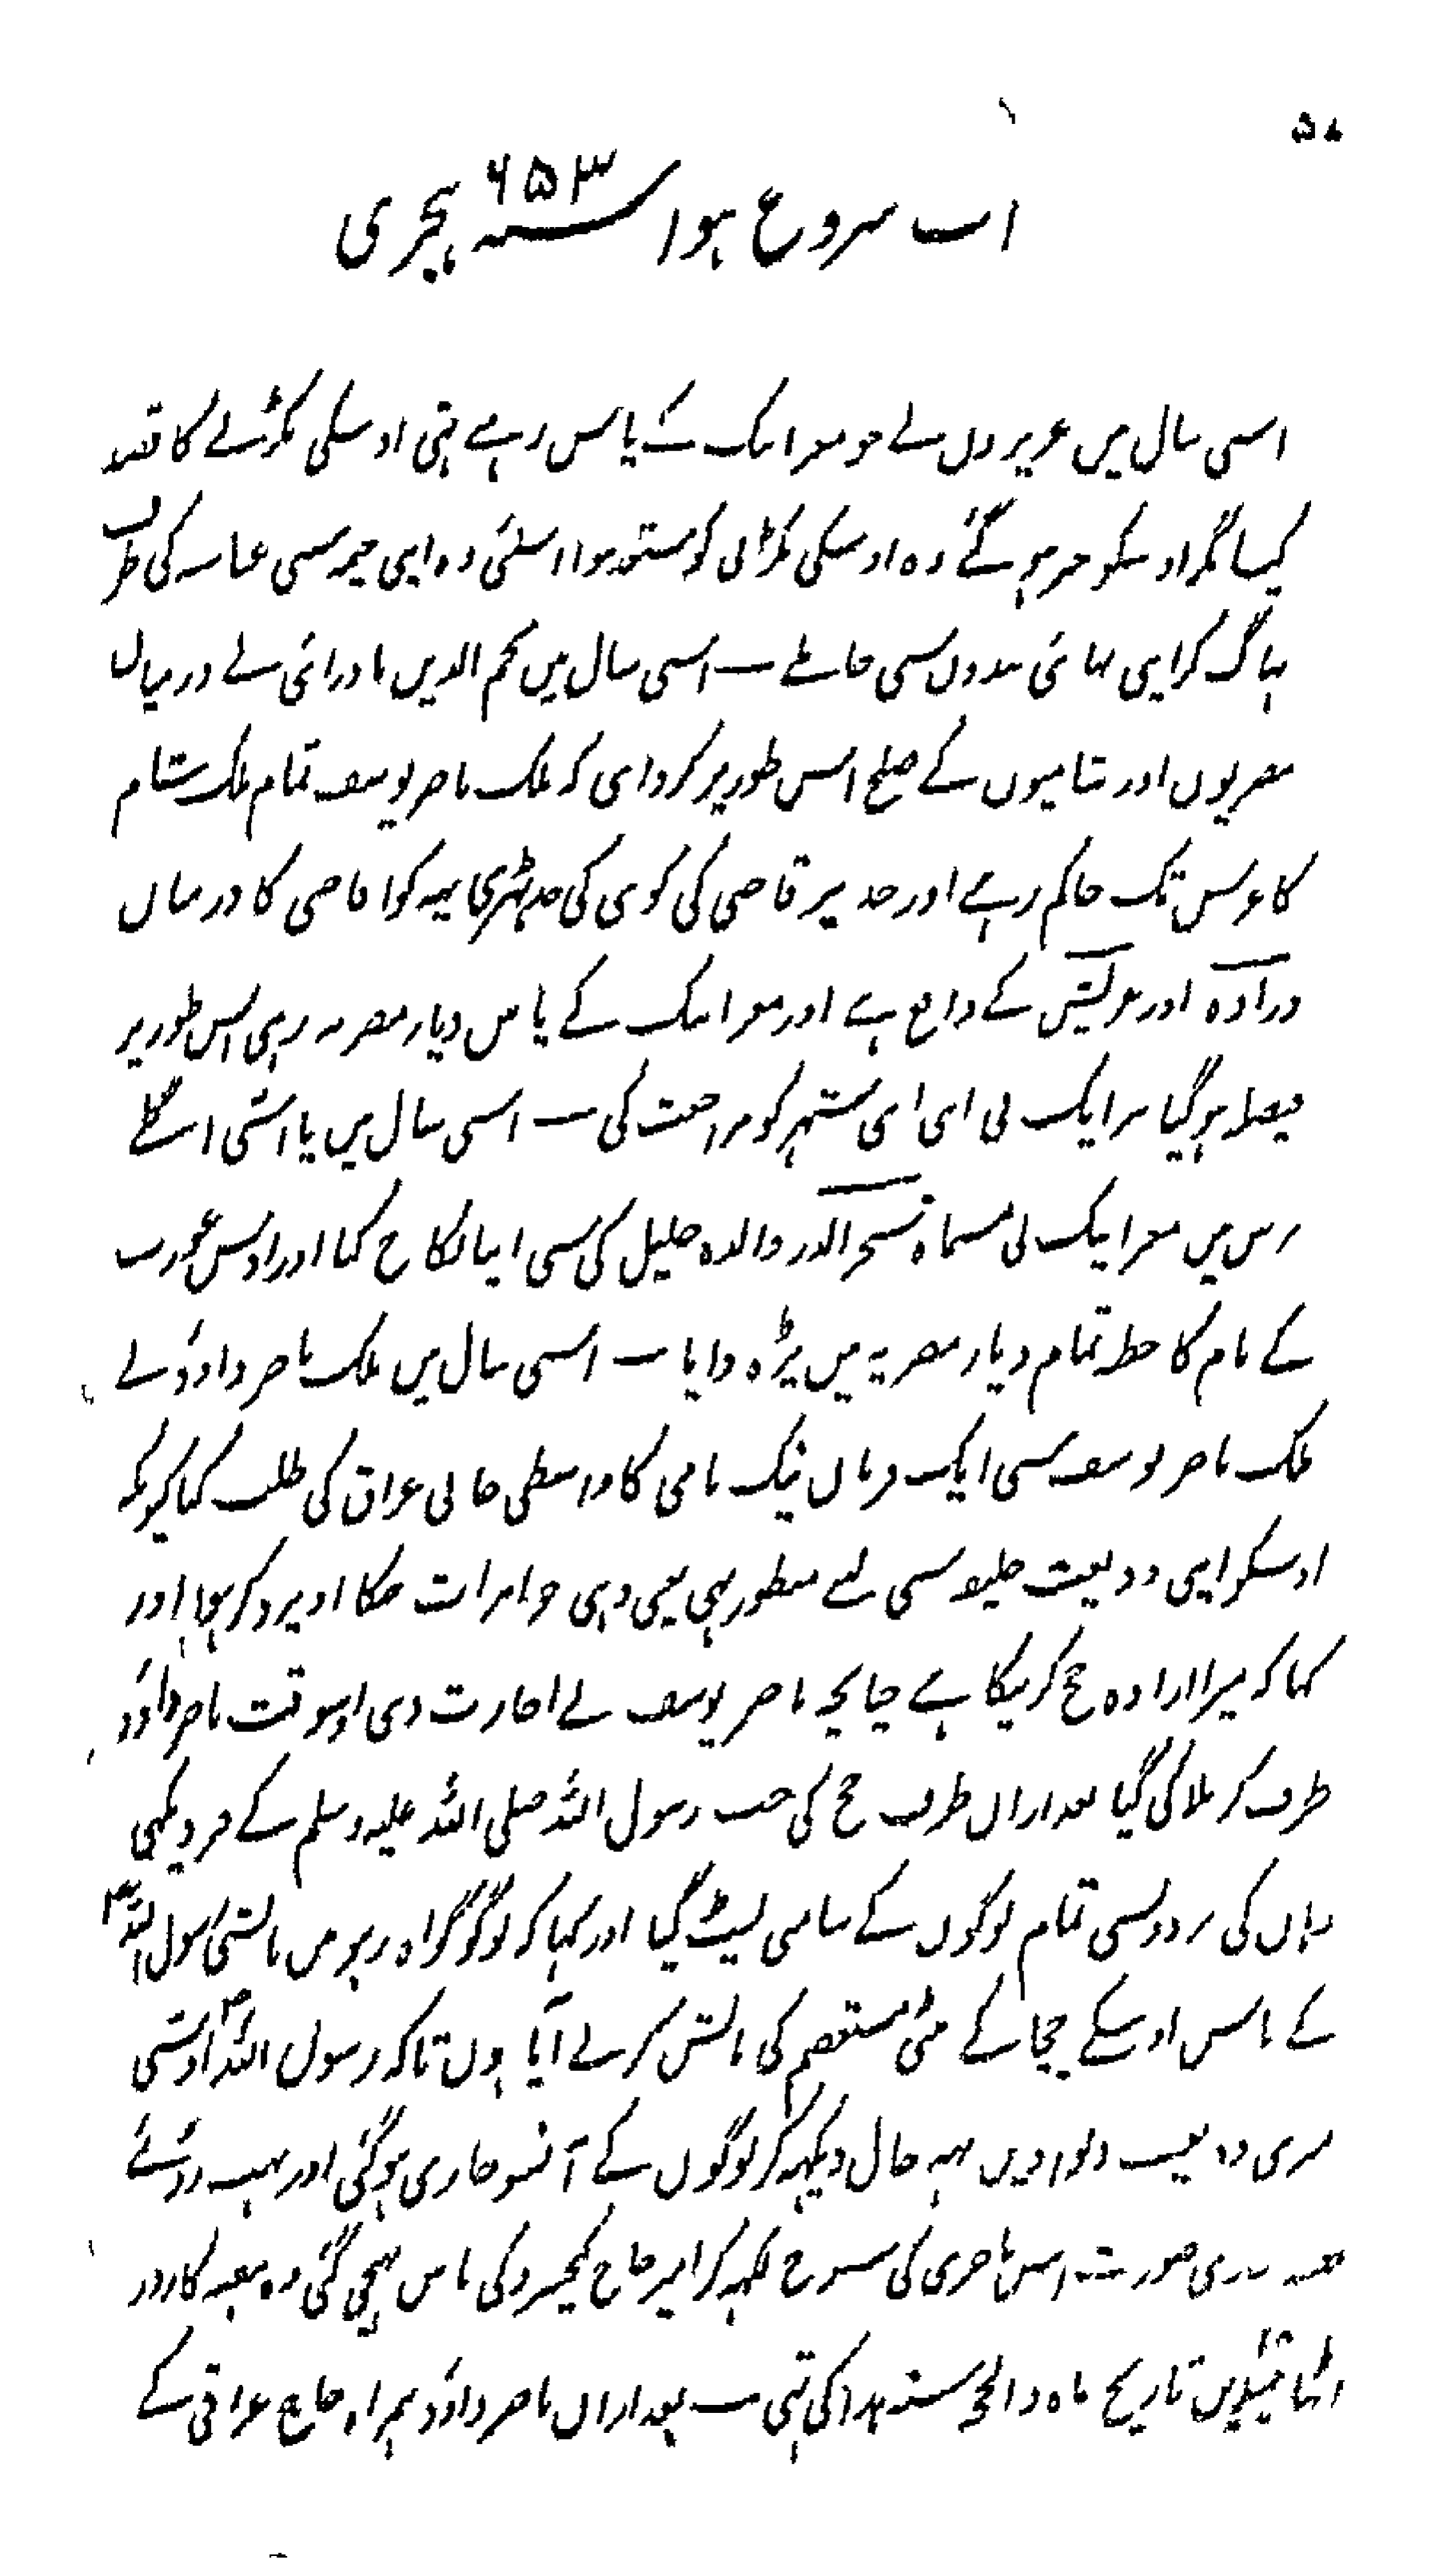 ۵۸
اب شروع ہوا سنہ ۶۵۳ ہجری
اسی سال میں عزیزوں نے جو معز ایبک کے پاس رہے تہی اوسکی پکڑنے کا قصد
کیا مگر اوسکو خبر ہو گئے وہ اوسکی پکڑنی کو مستعد ہوا اسلئی وہ اپنی خیمہ سی عباسہ کی طرف
بہاگ کر اپنی بہائی بندوں سی جا ملے — اسی سال میں نجم الدین بادرائی نے درمیان
مصریوں اور شامیوں کے صلح اس طور پر کروا دی کہ ملک ناصر یوسف تمام ملک شام
کا عریش تک حاکم رہے اور حد بیر قاضی کی کوی کی حد ٹہری یہہ کوا قاضی کا درمیان
ورّادہ اور عریش کے واقع ہے اور معز ایبک کے پاس دیار مصریہ رہی اس طور پر
فیصلہ ہو گیا ہر ایک نی اپنی اپنی شہر کو مراجعت کی — اسی سال میں یا اسّی اگلے
برس میں معز ایبک نی مسماۃ شجر الدر والدہ خلیل کی سی اپنا نکاح کیا اور اوس عورت
کے نام کا خطبہ تمام دیار مصریہ میں پڑہ وایا — اسی سال میں ملک ناصر داؤد نے
ملک ناصر یوسف سی ایک فرمان نیک نامی کا واسطی جانی عراق کی طلب کیا کیونکہ
اوسکو اپنی ودیعت خلیفہ سی لینے منظور تہی یعنی وہی جواہرات جنکا اوپر ذکر ہوا اور
کہا کہ میرا ارادہ حج کرنیکا ہے چنانچہ ناصر یوسف نے اجازت دی اوسوقت ناصر داؤد
طرف کربلا کی گیا بعد ازاں طرف حج کی جب رسول اللہ صلی اللہ علیہ وسلم کے قبر دیکہی
وہاں کی تمام لوگوں کے سامنی لیٹ گیا اور کہا کہ لوگو گواہ رہو میں نالشی رسول اللہ ؐ
کے پاس اوسکے چچا کے بیٹی مستعصم کی نالش کرنے آیا ہوں تاکہ رسول اللہ ؐ اوسّی
میری ودیعت دلوا دیں یہہ حال دیکہہ کر لوگوں کے آنسو جاری ہو گئی اور بہت روئے
یہہ ساری صورت اس ماجری کی مشروح لکہہ کر امیر حاج کیخسرو کی پاس بہیجی گئی وہ ہفتہ کا روز
اٹہائیسویں تاریخ ماہ ذالحجہ سنہ ہذا کی تہی — بعد ازاں ناصر داؤد ہمراہ حاج عراق کے